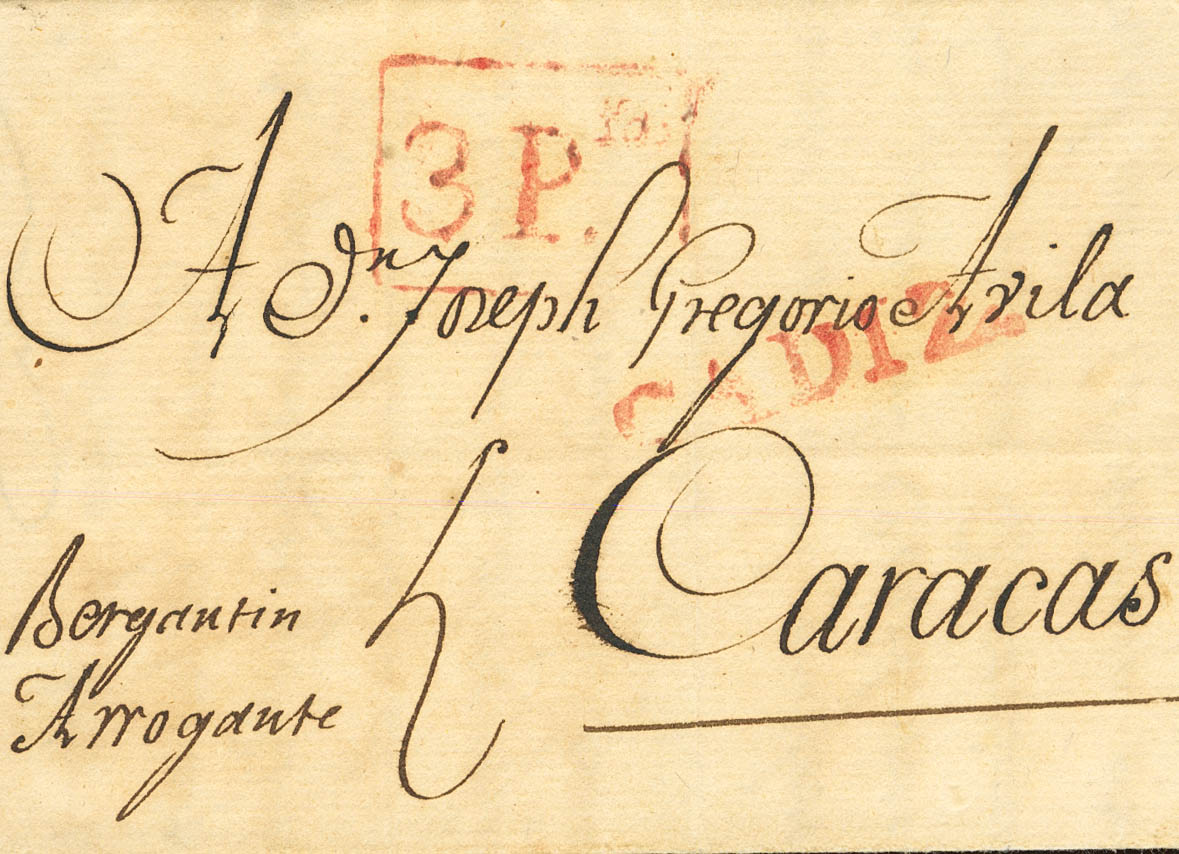 3 P.ts.
A Dn. Joseph Gregorio Avila
CADIZ
Caracas
Bergantin
Arrogante